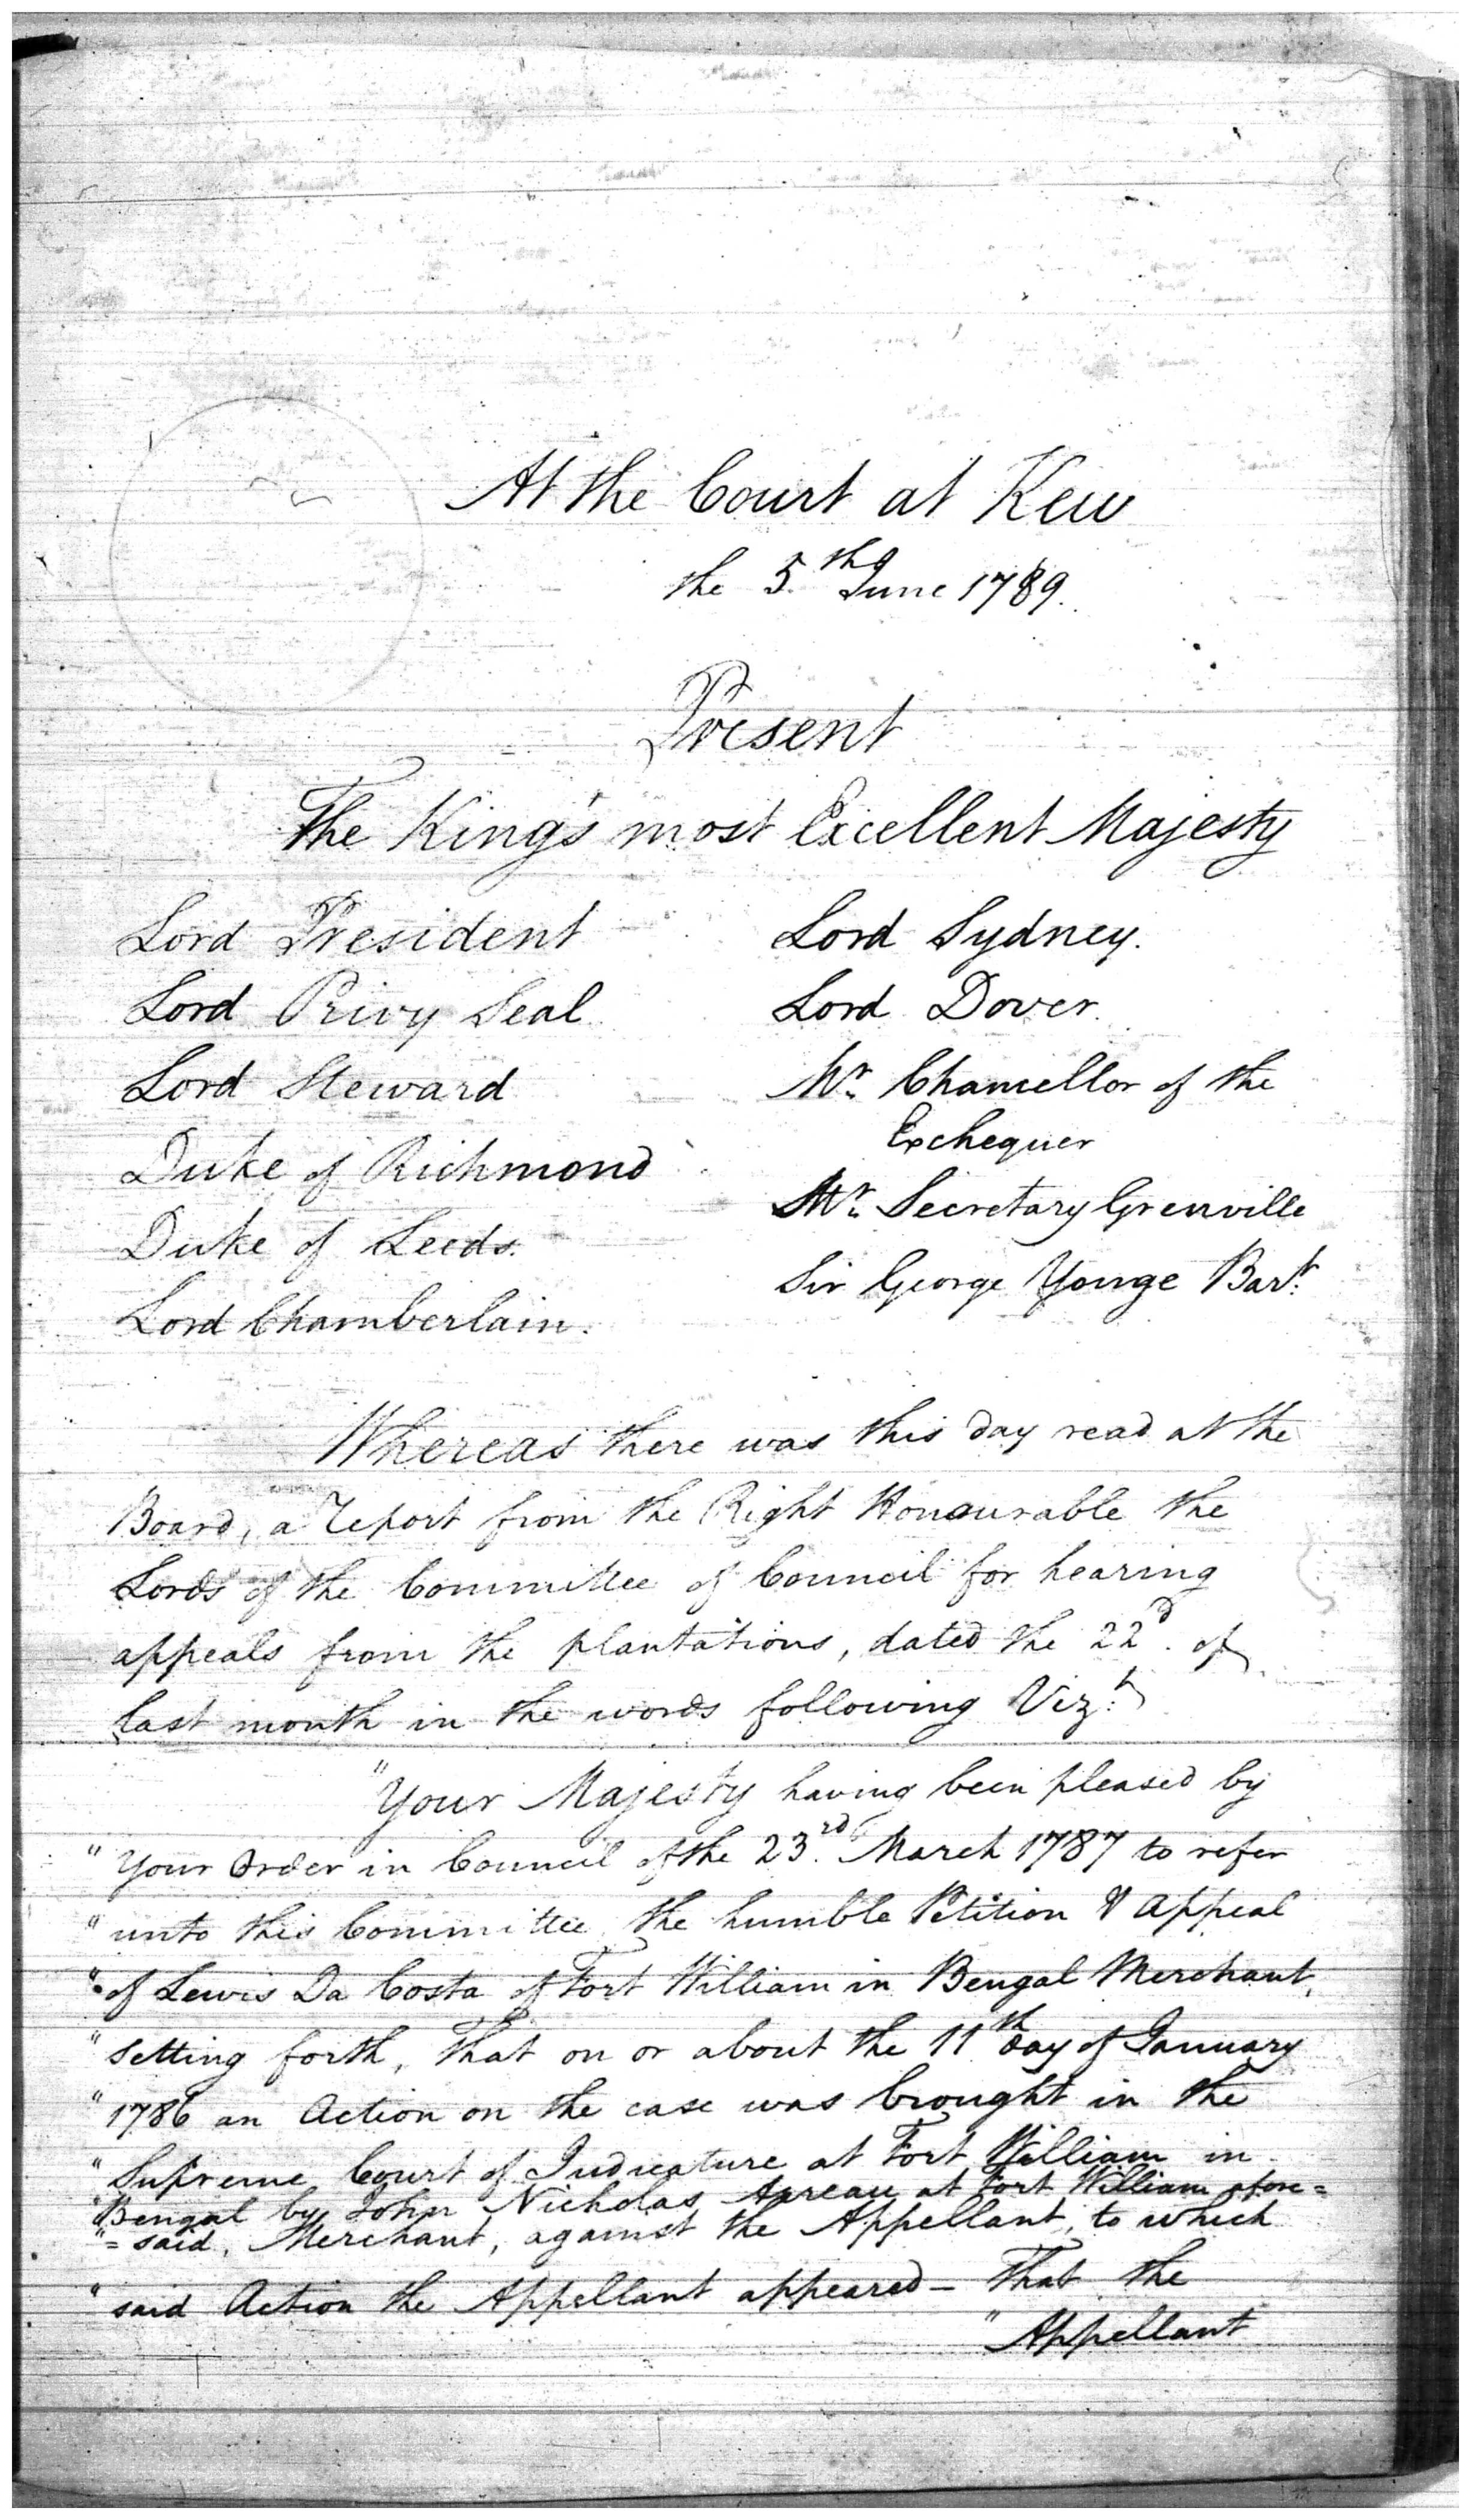 At the Court at Kew
the 5.th June 1789.
Present
The King's most Excellent Majesty
Lord President
Lord Privy Seal
Lord Steward
Duke of Richmond
Duke of Leeds.
Lord Chamberlain.
Lord Sydney.
Lord Dover.
Mr. Chancellor of the
Exchequer
Mr. Secretary Grenville
Sir George Yonge Bart.
Whereas there was this day read at the
Board, a report from the Right Honourable the
Lords of the Committee of Council for hearing
appeals from the plantations, dated the 22d. of
last month in the words following Vizt.
"Your Majesty having been pleased by
"Your Order in Council of the 23.rd March 1787 to refer
"unto this Committee the humble Petition & Appeal
"of Lewis Da Costa of Fort William in Bengal Merchant,
"setting forth, That on or about the 11th day of January
"1786 an Action on the case was brought in the
"Supreme Court of Judicature at Fort William in
"Bengal by John Nicholas at Fort William afore=
"=said, Merchant, against the Appellant, to which
"said Action the Appellant appeared — That the
"Appellant